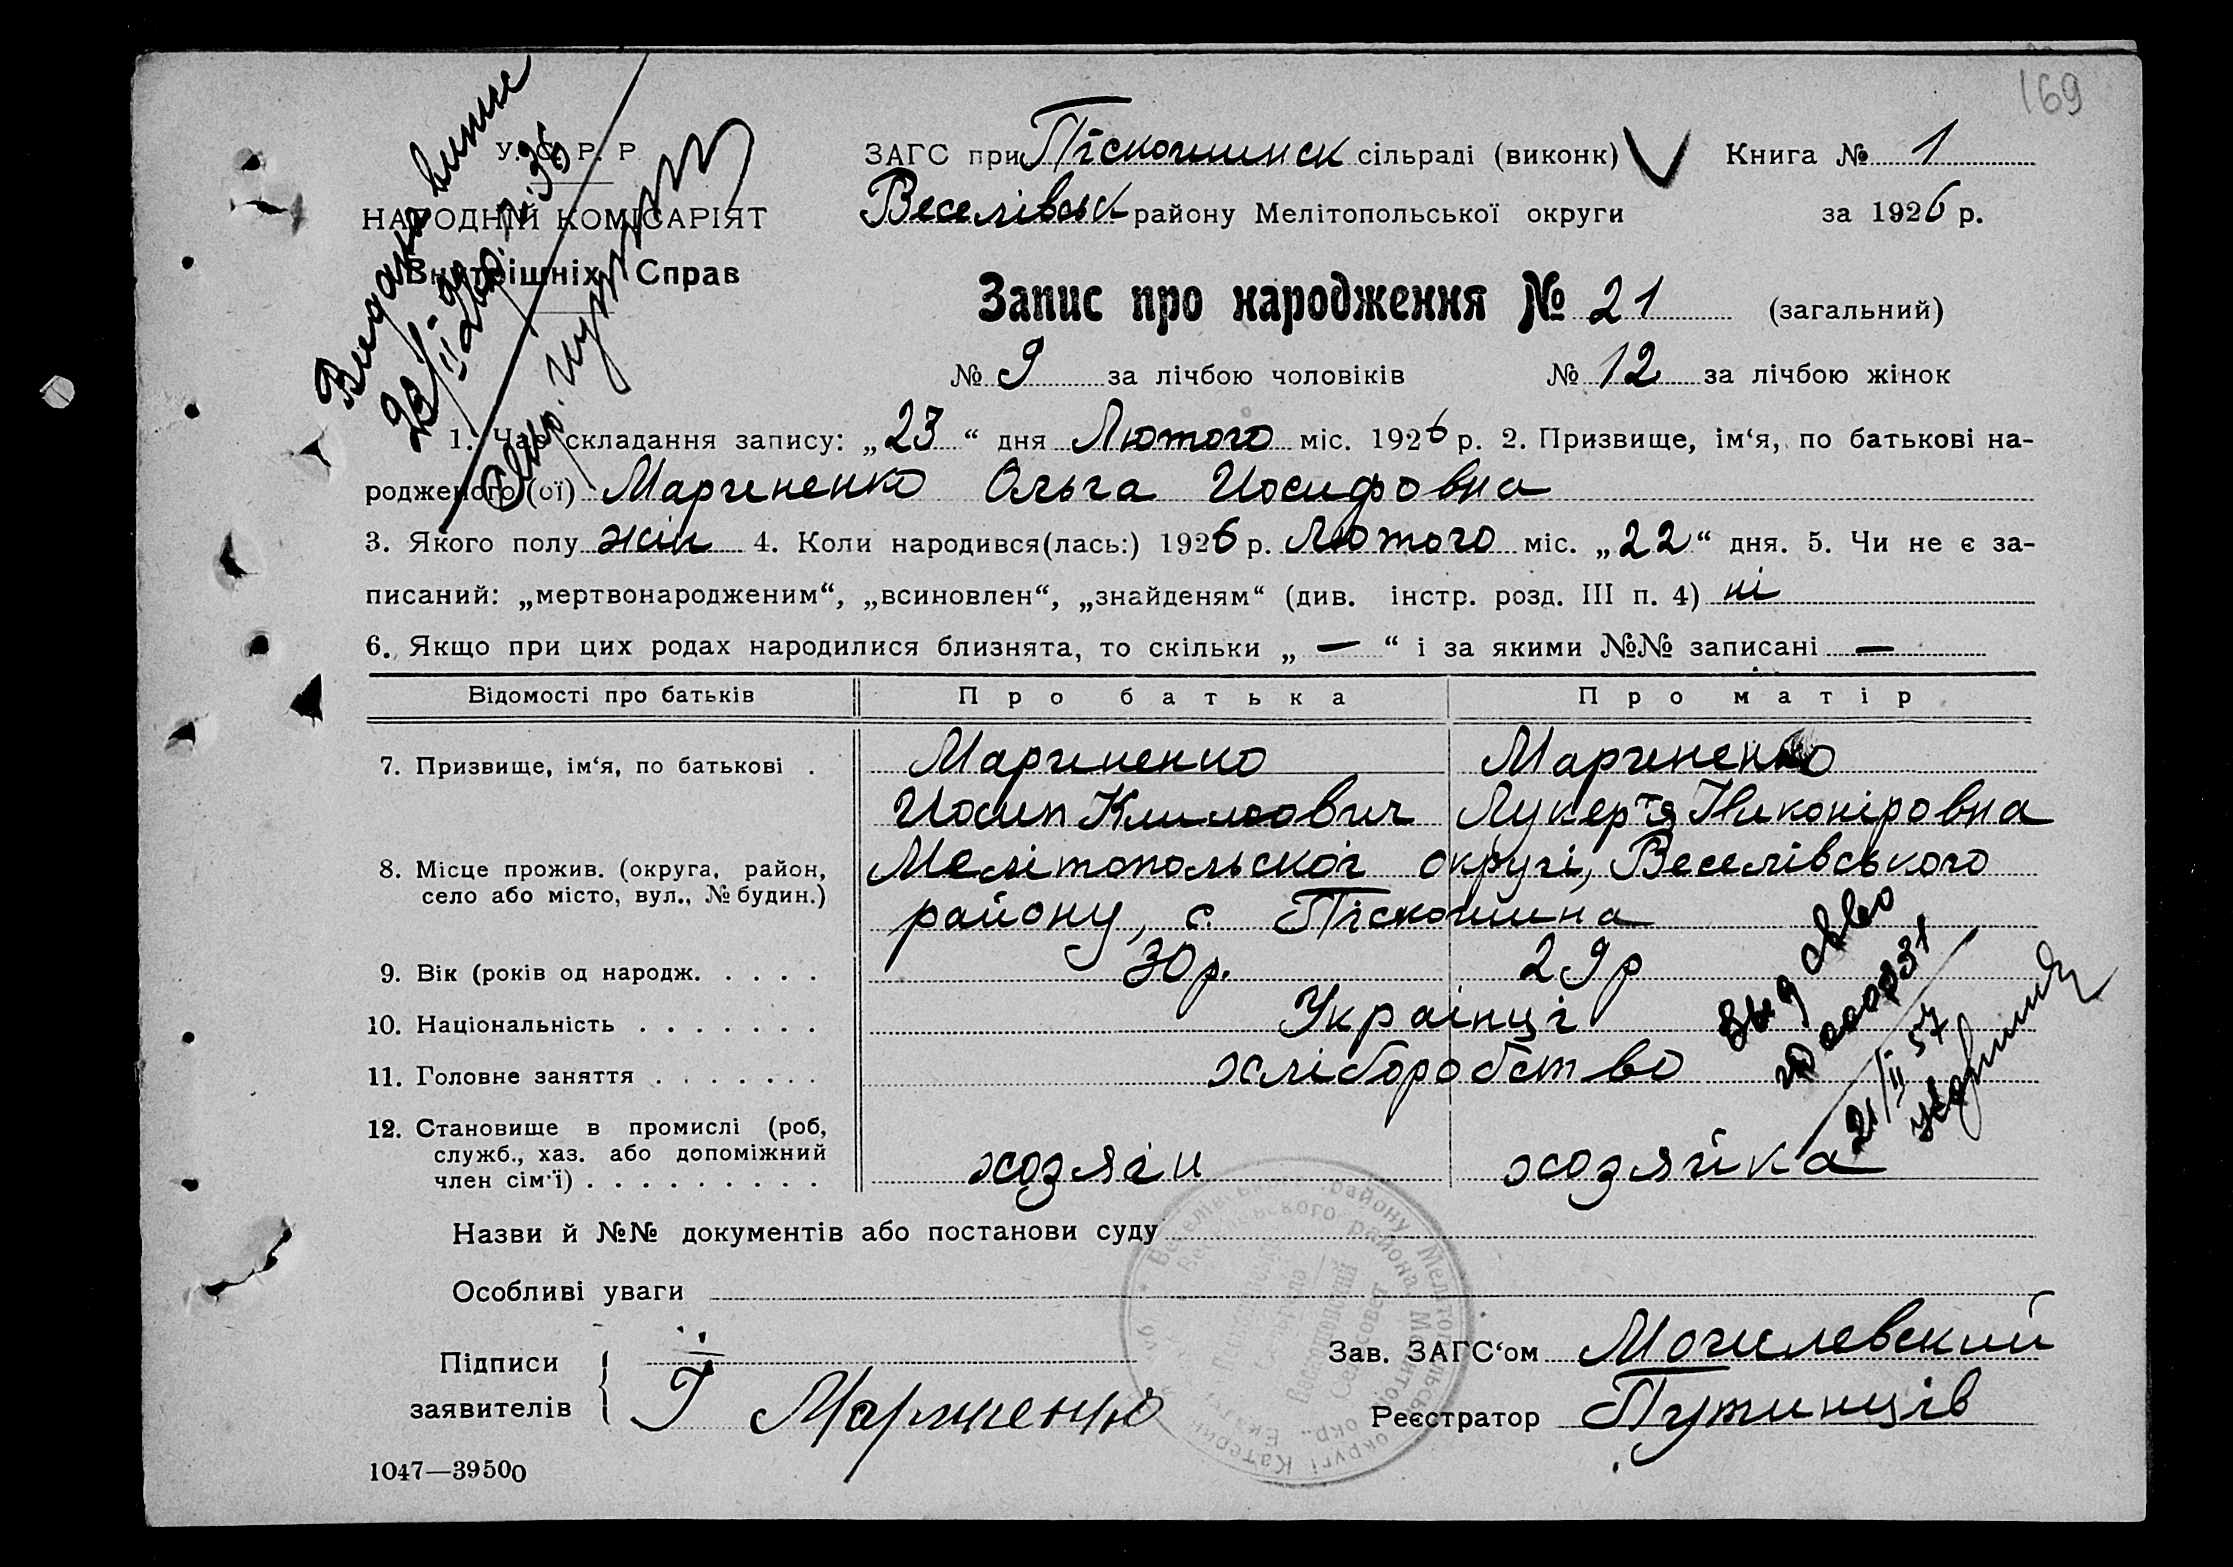 169
У. С. Р. Р.
НАРОДНІЙ КОМІСАРІЯТ
Внутрішніх Справ
ЗАГС при Піскошинск сільраді (виконк) Книга № 1
Веселівськ району Мелітопольської округи за 1926 р.
Запис про народження № 21 (загальний)
№ 9 за лічбою чоловіків № 12 за лічбою жінок
1. Час складання запису: „23“ дня Лютого міс. 1926 р. 2. Призвище, ім‘я, по батькові на-
родженого (ої) Маргиненко Ольга Иосифовна
3. Якого полу жін 4. Коли народився(лась:) 1926 р. Лютого міс. „22“ дня. 5. Чи не є за-
писаний: „мертвонародженим“, „всиновлен“, „знайденям“ (див. інстр. розд. III п. 4) ні
6. Якщо при цих родах народилися близнята, то скільки „ — “ і за якими №№ записані —
Відомості про батьків Про батька Про матір
7. Призвище, ім‘я, по батькові . Маргиненко Маргиненко
Иосип Климович Лукер'я Никонiровна
8. Місце прожив. (округа, район, Мелітопольської округі, Веселівського
село або місто, вул., № будин.) району, с. Піскошина
9. Вік (років од народж. . . . . 30 р. 29 р
10. Національність . . . . . . . Українці
11. Головне заняття . . . . . . . хліборобство
12. Становище в промислі (роб,
служб., хаз. або допоміжний
член сім‘ї) . . . . . . . . . хозяін хозяйка
21/II 57
Назви й №№ документів або постанови суду
Особливі уваги
Підписи
заявителів
Зав. ЗАГС‘ом Могилевский
Реєстратор Путинців
1047—39500